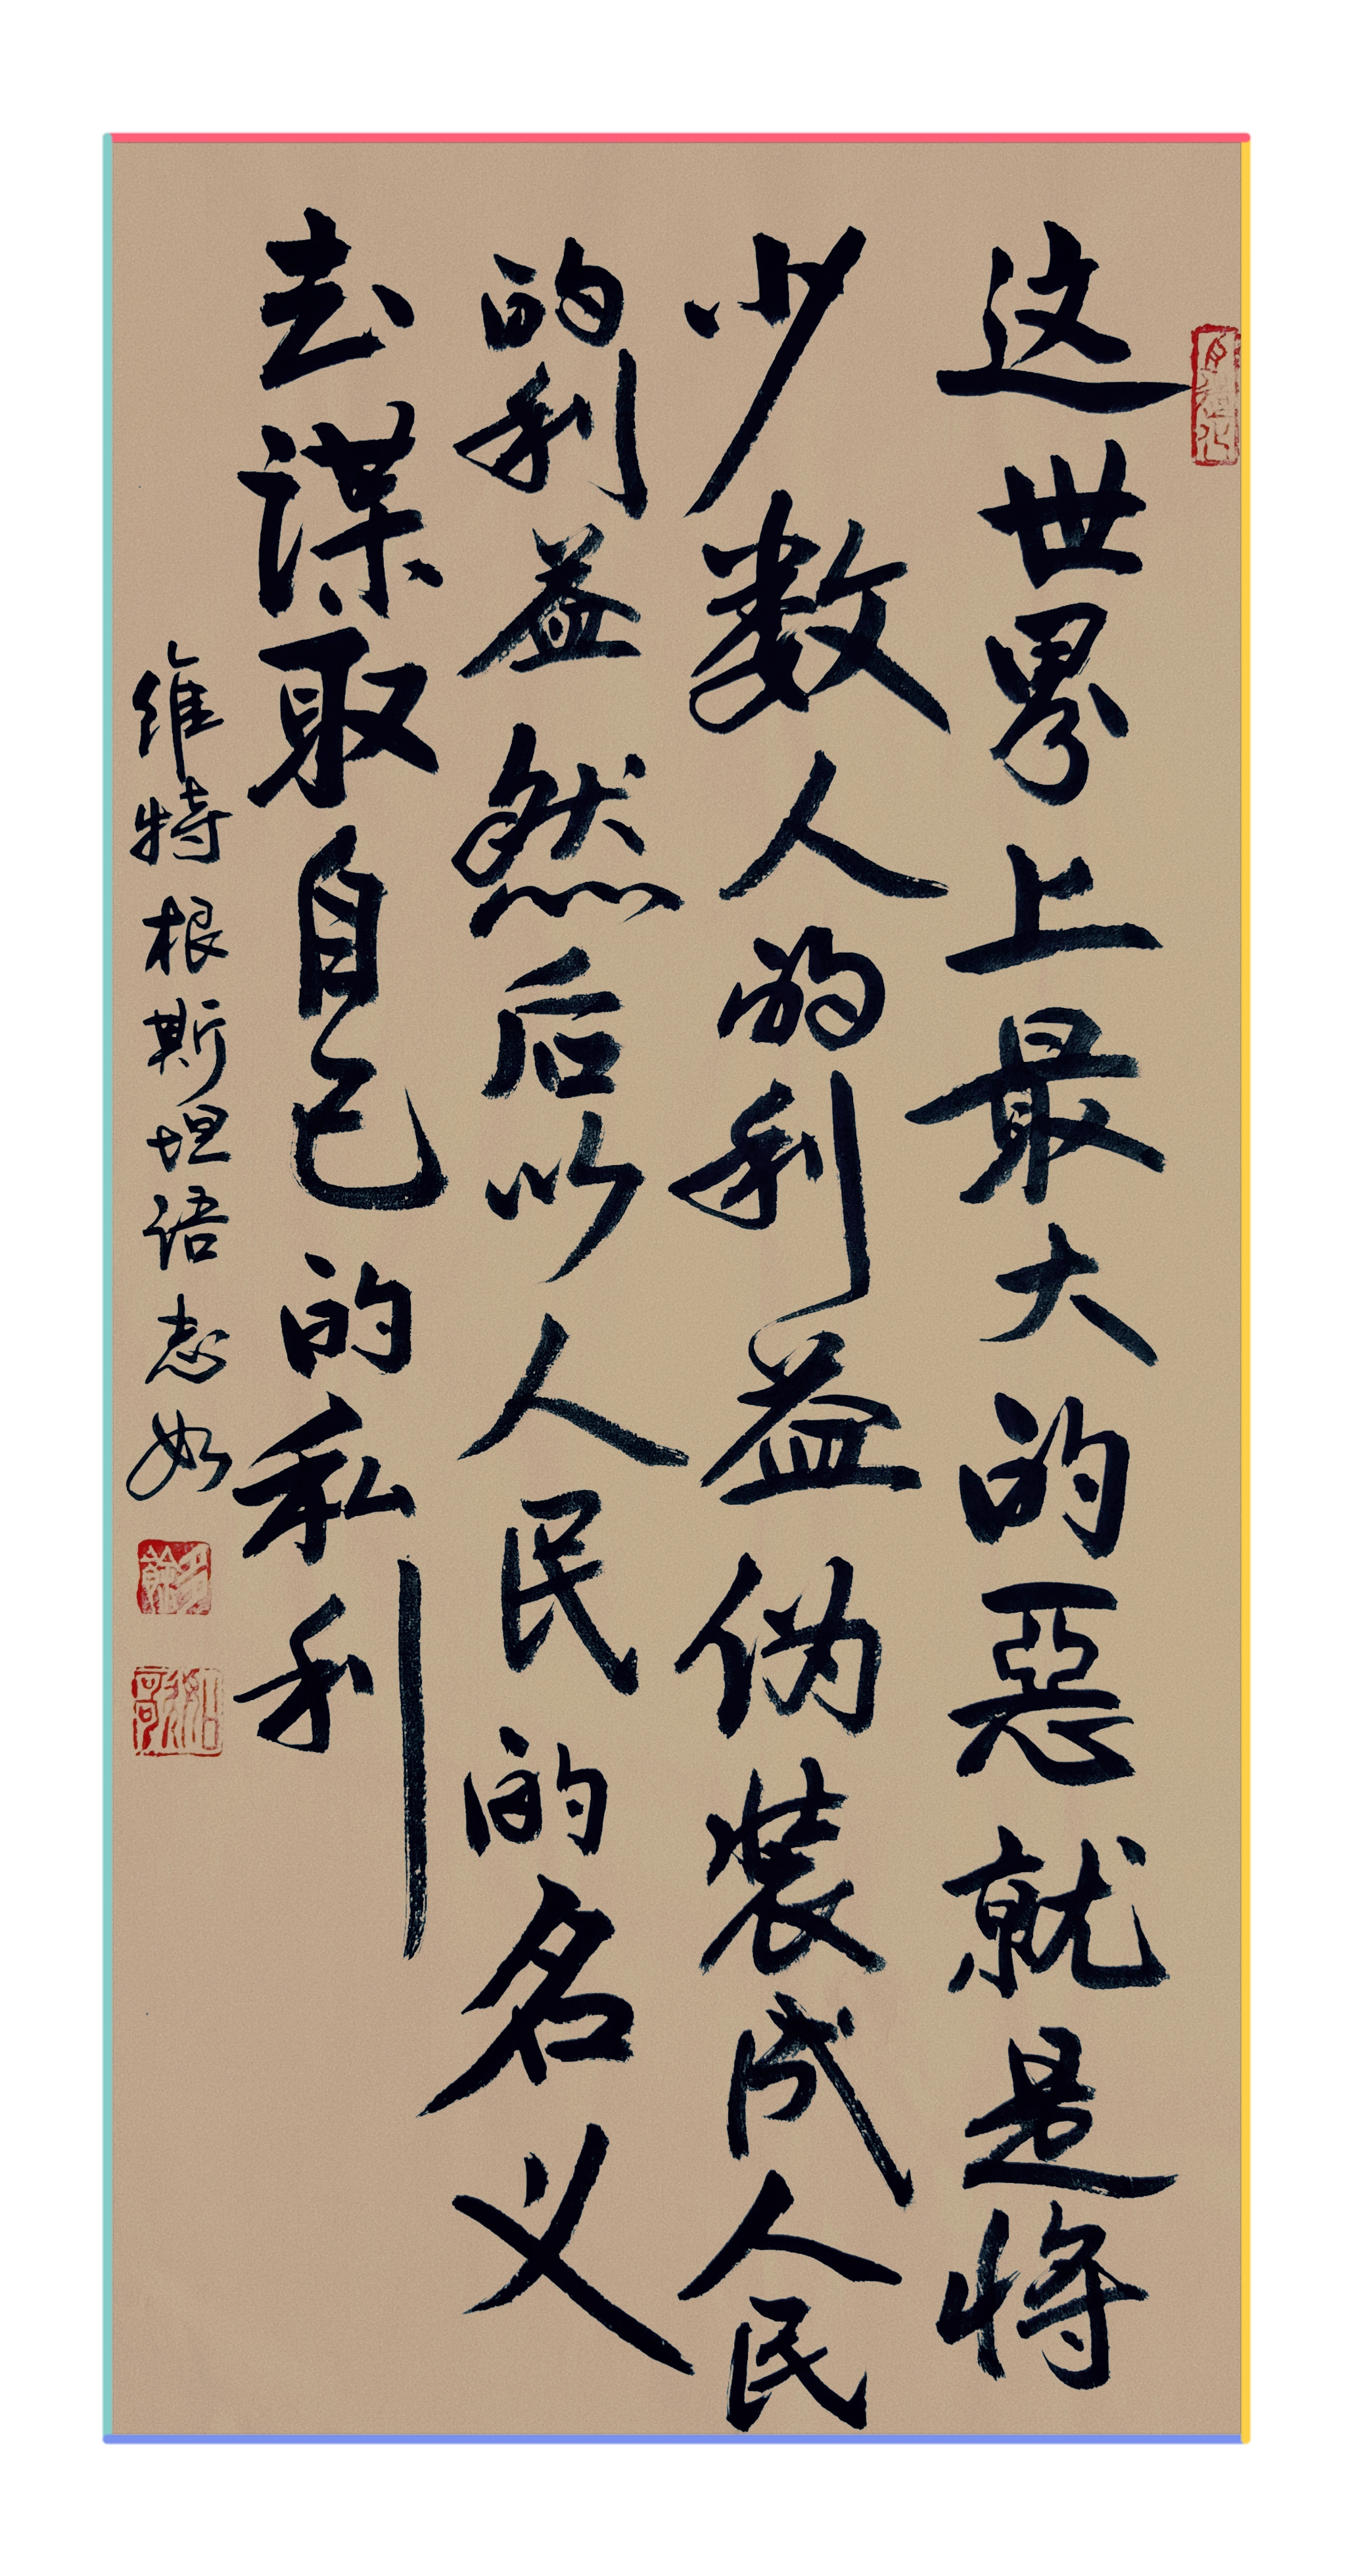 这世界上最大的惡就是将
少数人的利益伪装成人民
的利益然后以人民的名义
去谋取自己的私利
维特根斯坦语 志如